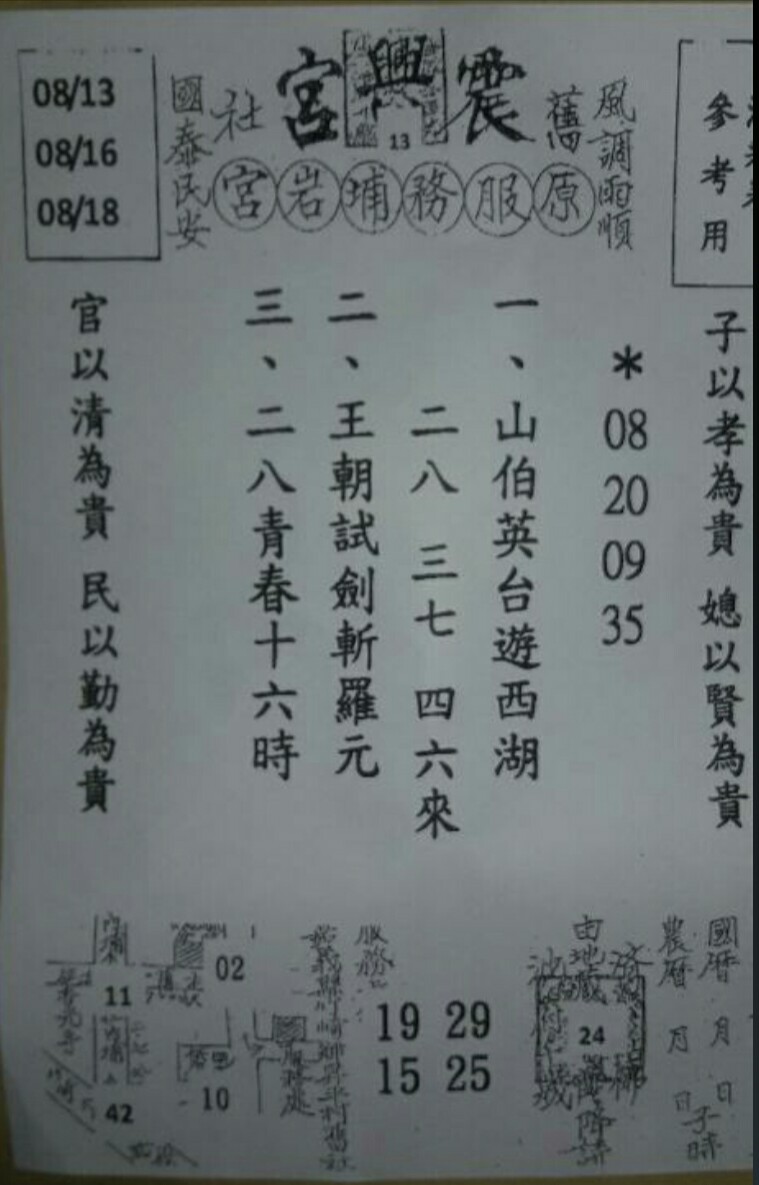 參考用
風調雨順
舊社
震興宮
13
國泰民安
原服務埔岩宮
08/13
08/16
08/18
子以孝為貴 媳以賢為貴
*08 20 09 35
一、山伯英台遊西湖
二八 三七 四六來
二、王朝試劍斬羅元
三、二八青春十六時
官以清為貴 民以勤為貴
國曆 月 日
農曆 月 日
子時
24
服務
19 29
15 25
服務處
02
11
10
42